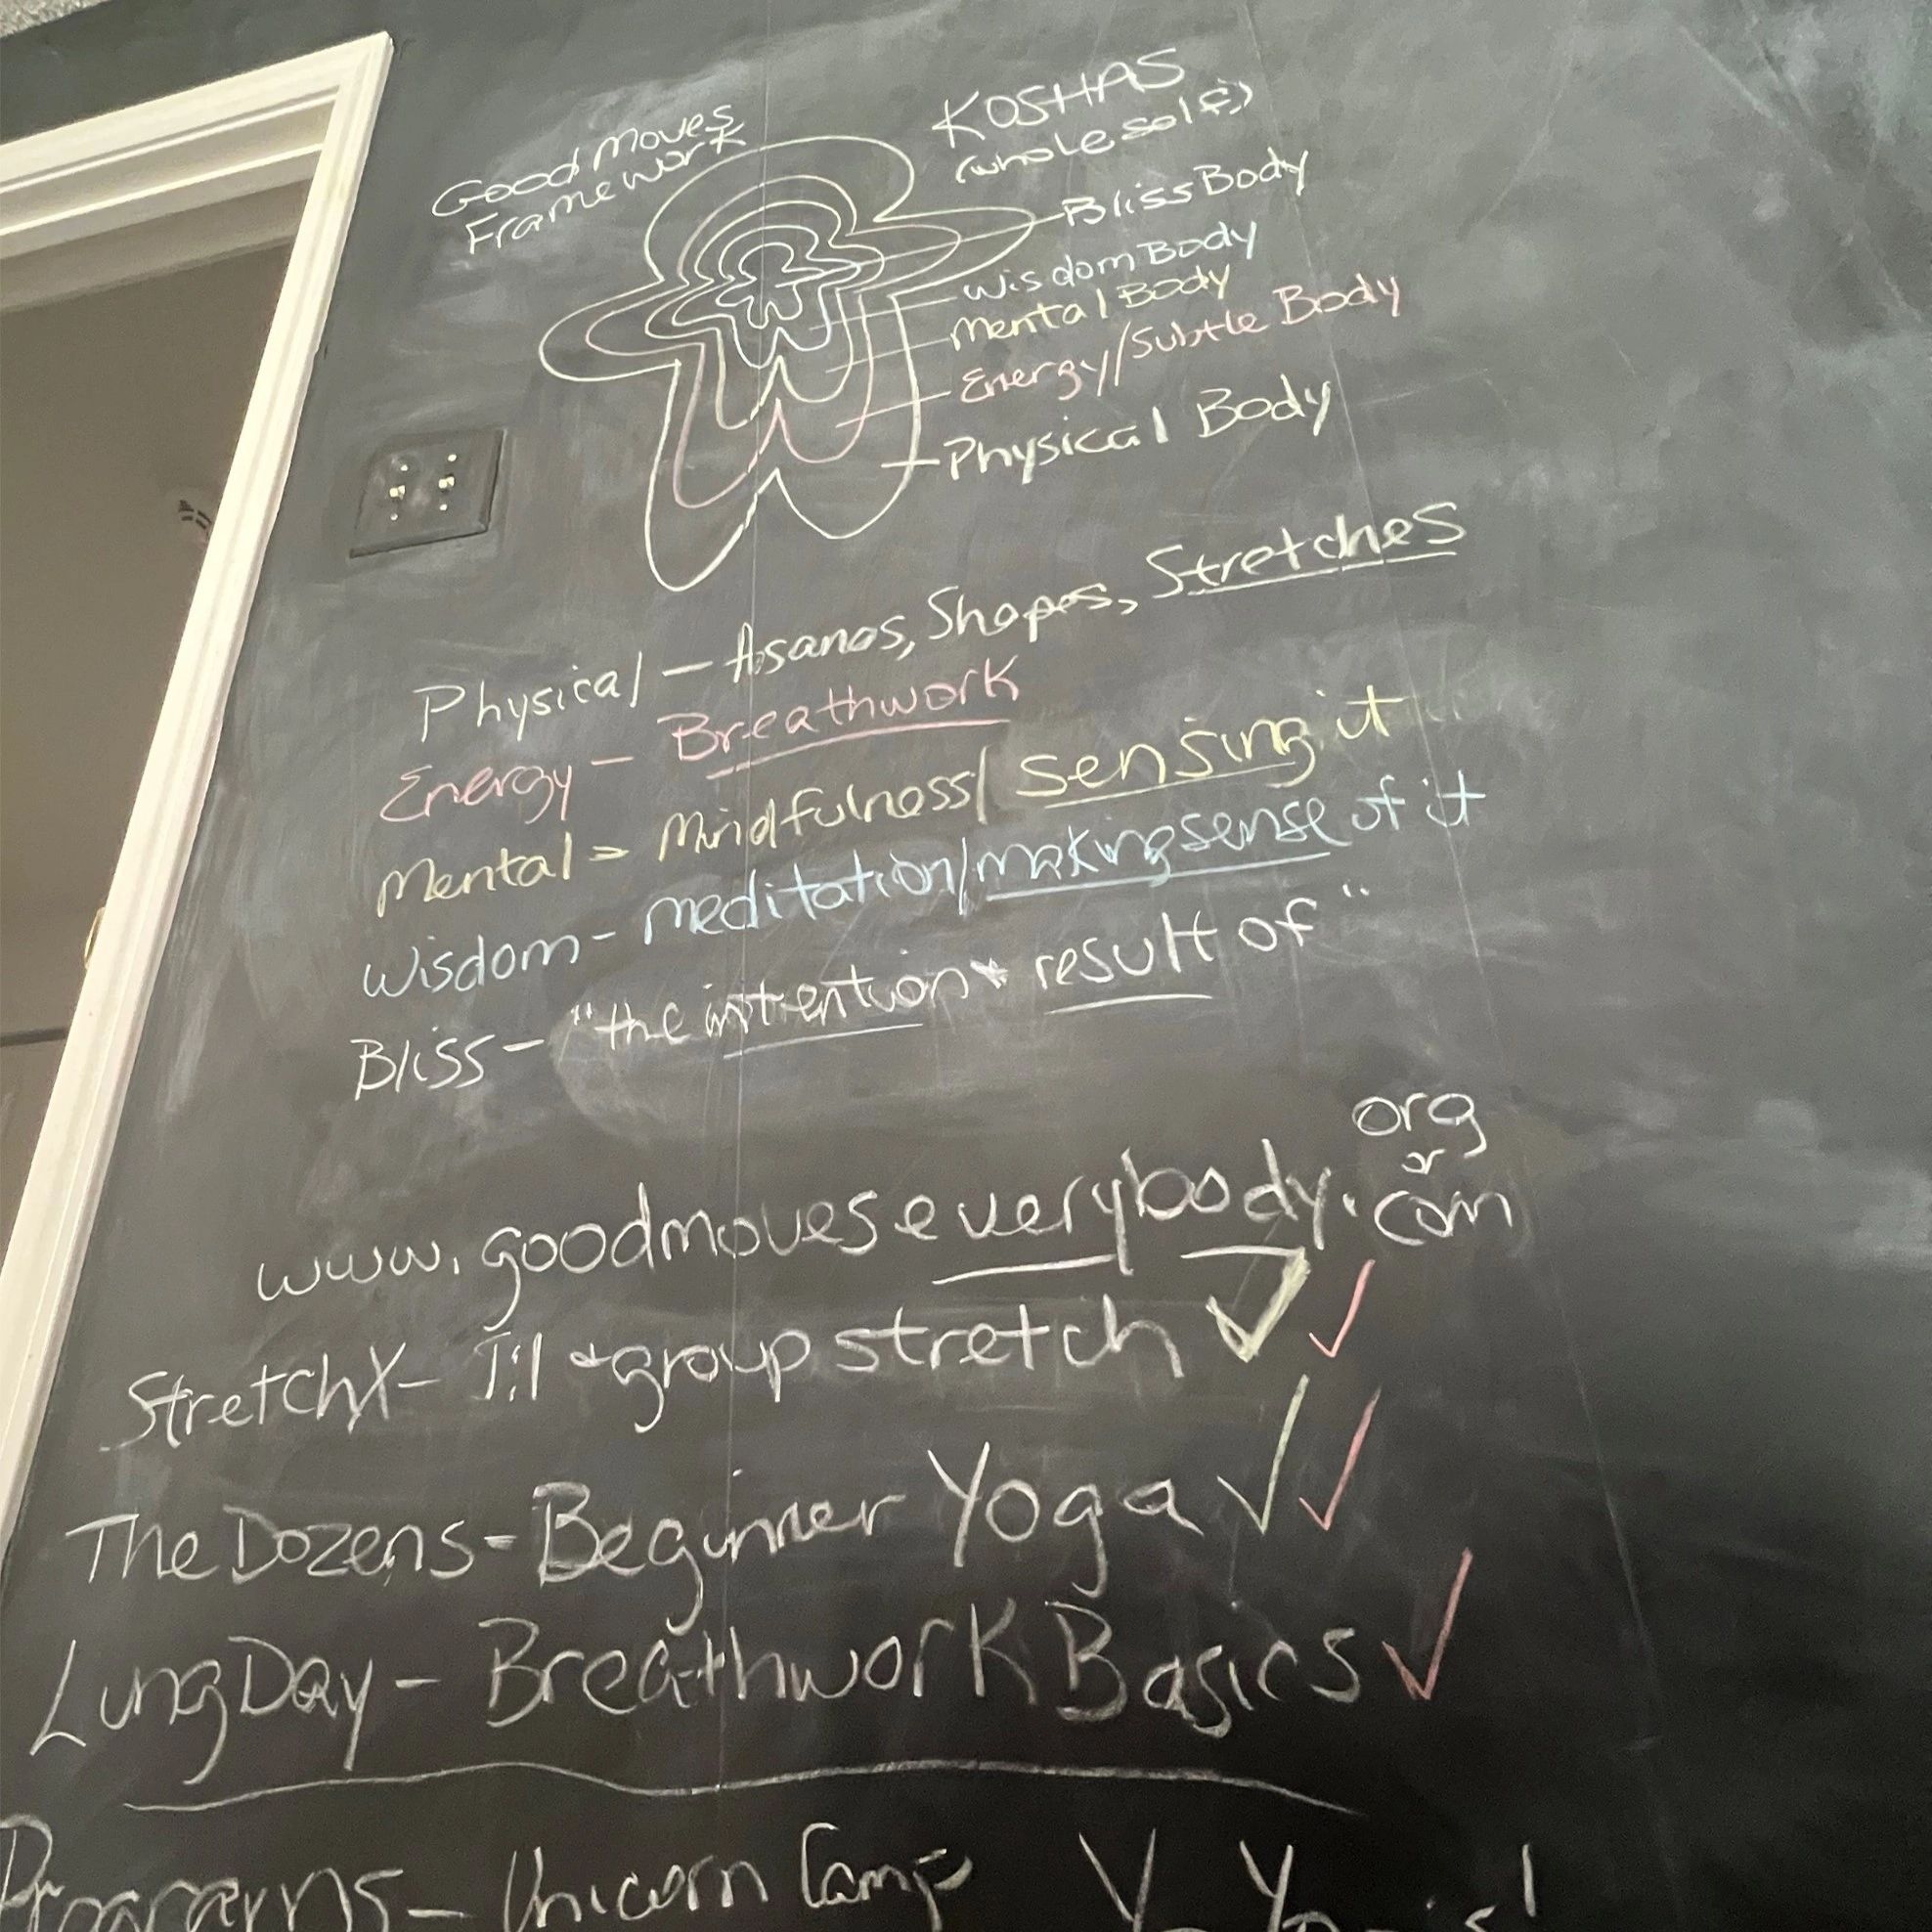 Good Moves
Framework
KOSHAS
(whole self)
Bliss Body
Wisdom Body
Mental Body
Energy/Subtle Body
Physical Body
Physical — Asanas, Shapes, Stretches
Energy — Breathwork
Mental - Mindfulness/sensing it
Wisdom - meditation/making sense of it
Bliss - "the intention + result of"
org
or
www.goodmoveseverybody.com
StretchX - 1:1 + group stretch ✓ ✓
The Dozens - Beginner Yoga ✓ ✓
Lung Day - Breathwork Basics ✓
Programs - Unicorn Camp